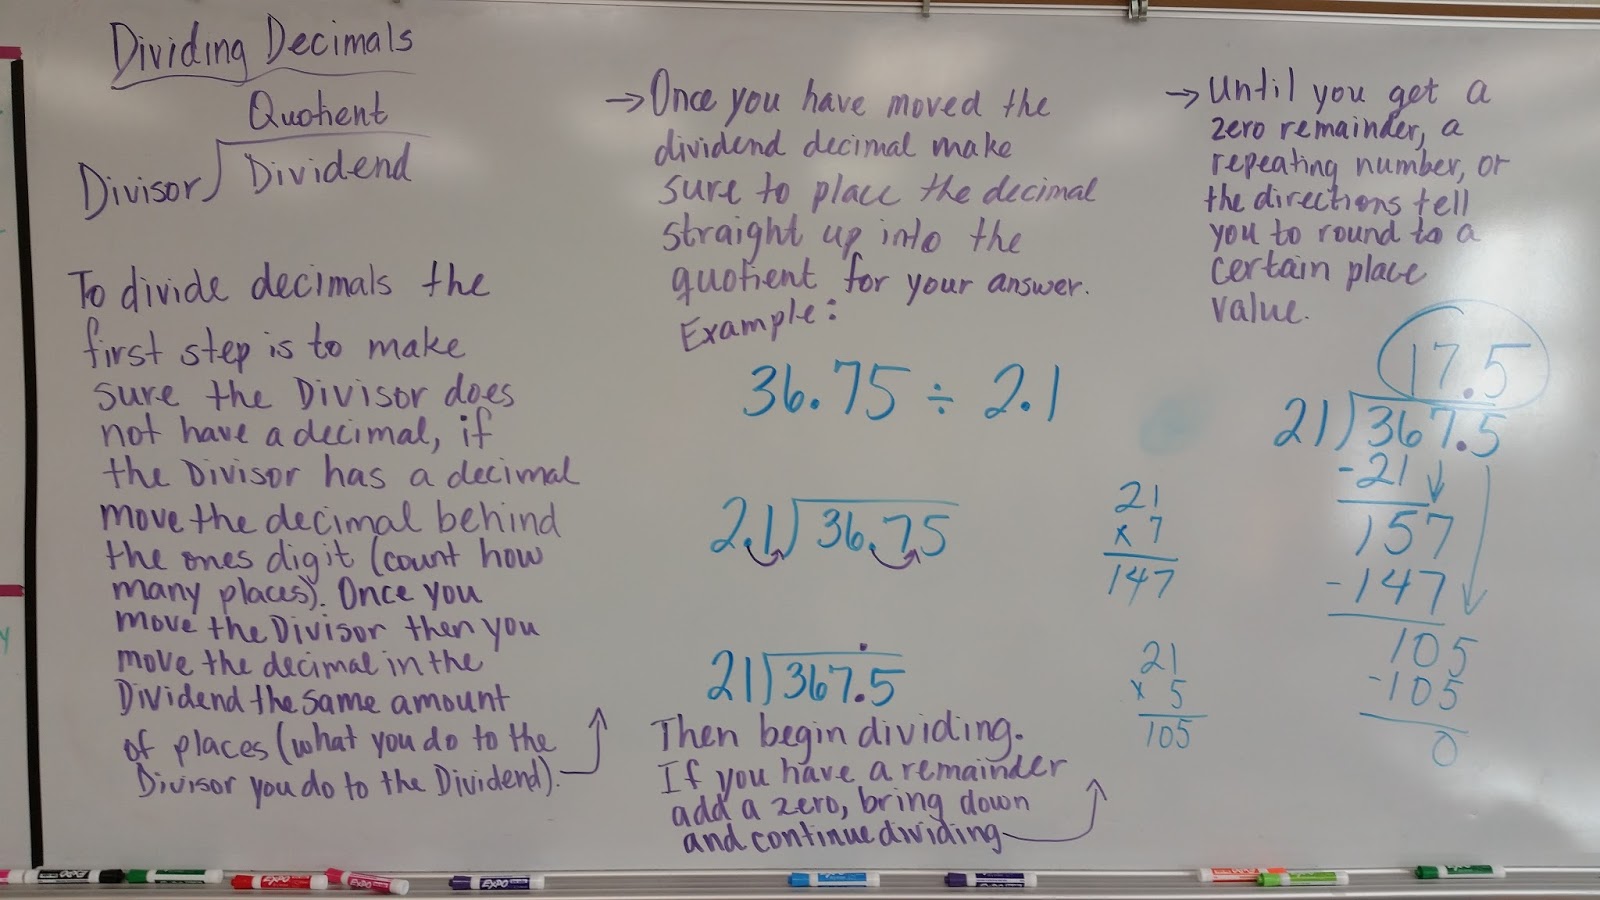 Dividing Decimals
Quotient
Divisor)Dividend
To divide decimals the
first step is to make
sure the Divisor does
not have a decimal, if
the Divisor has a decimal
move the decimal behind
the ones digit (count how
many places). Once you
move the Divisor then you
move the decimal in the
Dividend the same amount
of places (what you do to the
Divisor you do to the Dividend).
→ Once you have moved the
dividend decimal make
sure to place the decimal
straight up into the
quotient for your answer.
Example:
36.75 ÷ 2.1
2.1)36.75
21)367.5
Then begin dividing.
If you have a remainder
add a zero, bring down
and continue dividing
→ Until you get a
zero remainder, a
repeating number, or
the directions tell
you to round to a
certain place
value.
21
x 7
147
21
x 5
105
17.5
21)367.5
-21
157
-147
105
-105
0
EXPO
EXPO
EXPO
EXPO